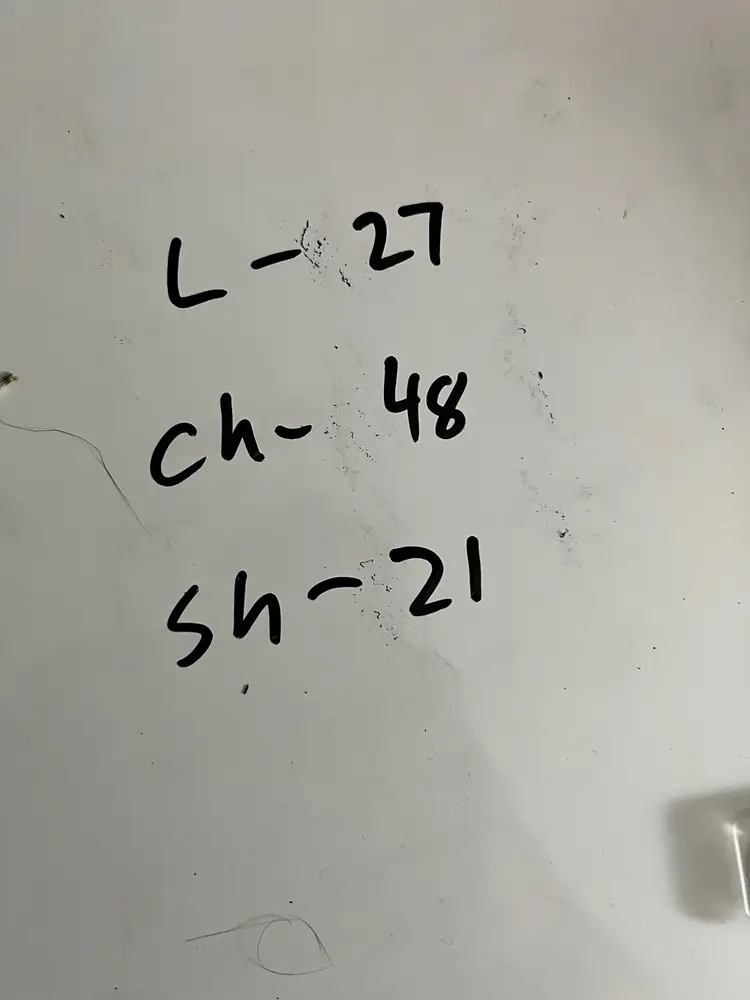 L - 27
Ch - 48
Sh - 21